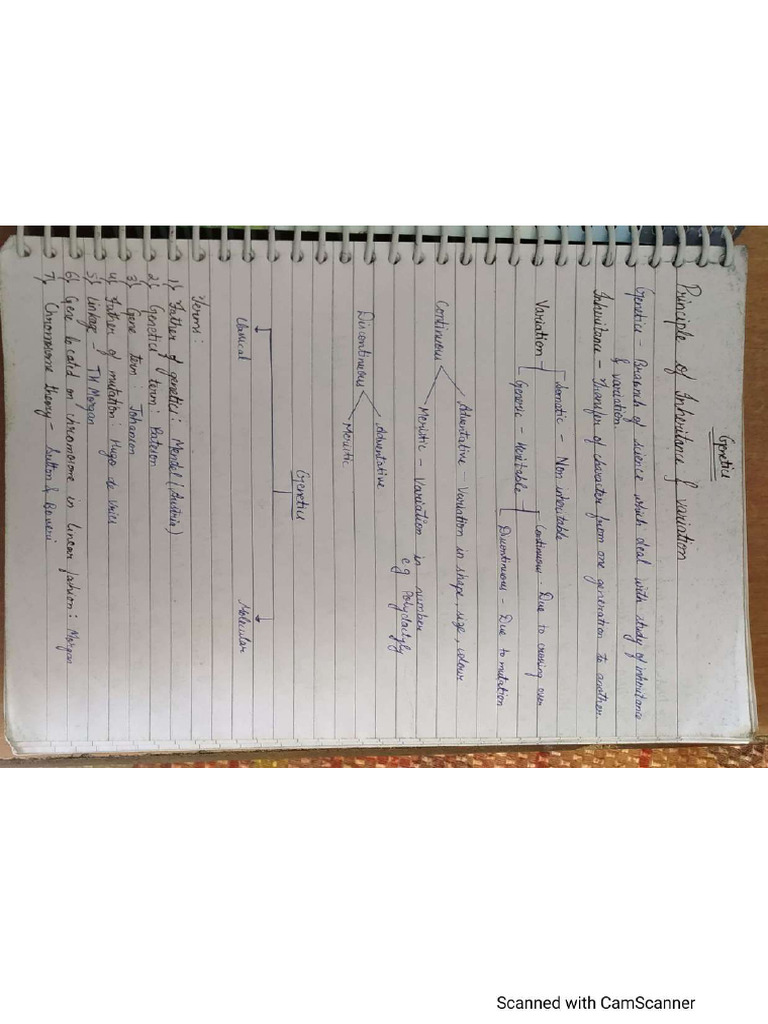 Genetics
Principle of Inheritance & variation
Genetics - Branch of science which deal with study of inheritance
& variation.
Inheritance - Transfer of character from one generation to another
Variation
Somatic - Non inheritable
Genetic - Heritable
Continuous - Due to crossing over
Discontinuous - Due to mutation
Continuous
Adventative - Variation in shape, size, colour
Meristic - Variation in number
e.g Polydactyly
Discontinuous
Adventative
Meristic
Genetics
Classical
Molecular
Terms:
1) Father of genetics: Mendel (Austria)
2) Genetics term: Bateson
3) Gene term: Johanson
4) Father of mutation: Hugo de Vries
5) Linkage - TH Morgan
6) Gene located on chromosome in linear fashion: Morgan
7) Chromosome theory - Sutton & Boveri
Scanned with CamScanner